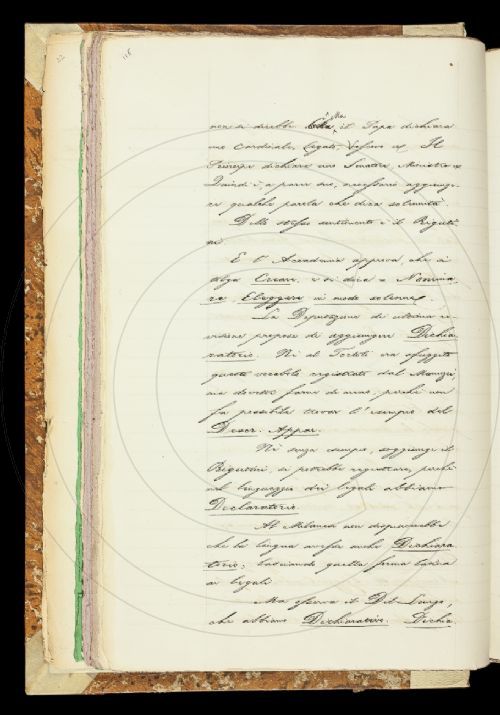 118
non si direbbe Ma il Papa dichiara
uno Cardinale, Legato, Vescovo ec. Il
Principe dichiara uno Senatore, Ministro ec
Quindi è, a parer mio, necessario aggiunge-
re qualche parola che dica solennità.
Dello stesso sentimento è il Bigutti-
ni.
E l'Accademia approva, che si
dica Creare, e si dica e Nomina-
re Eleggere in modo solenne
La Deputazione di ultima re-
visione propose di aggiungere Dichia-
ratorio. Nè al Tortoli era sfuggito
questo vocabolo registrato dal Manuzzi,
ma dovette farne di meno, perchè non
fu possibile trovar l'esempio del
Discr. Appar.
Nè senza esempio, soggiunge il
Rigutini, si potrebbe registrare, perchè
nel linguaggio dei legali abbiamo
Declaratorio.
Al Milanesi non dispiacerebbe
che la lingua avesse anche Dichiara-
torio, lasciando quella forma latina
ai legali
Ma osserva il Del Lungo,
che abbiamo Dichiarativo. Dichia-